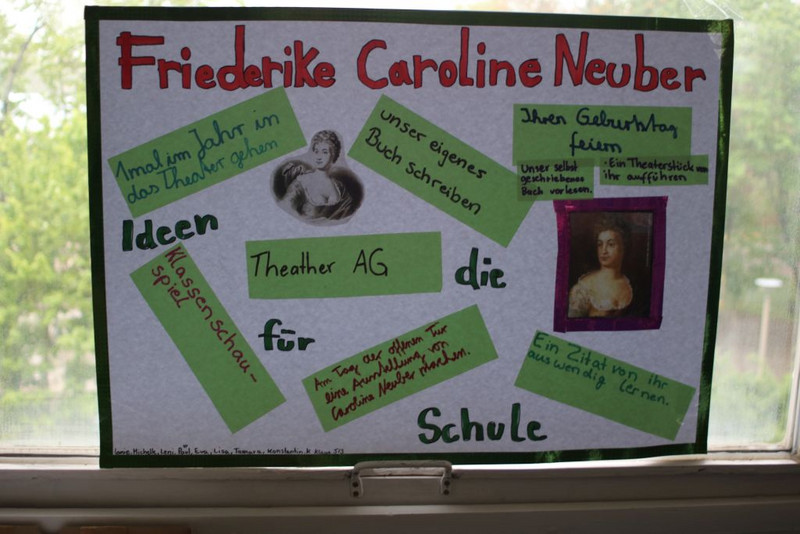 Friederike Caroline Neuber
1mal im Jahr in
das Theater gehen
unser eigenes
Buch schreiben
Ihren Geburtstag
feiern
Unser selbst
geschriebenes
Buch vorlesen.
• Ein Theaterstück von
ihr aufführen
Ideen
Theather AG
die
Klassenschau-
spiel
für
Am Tag der offenen Tür
eine Ausstellung von
Carolina Neuber machen.
Ein Zitat von ihr
auswendig lernen.
Schule
Michelle, Leni, Paul, Eva, Lisa, Tamara, Konstantin